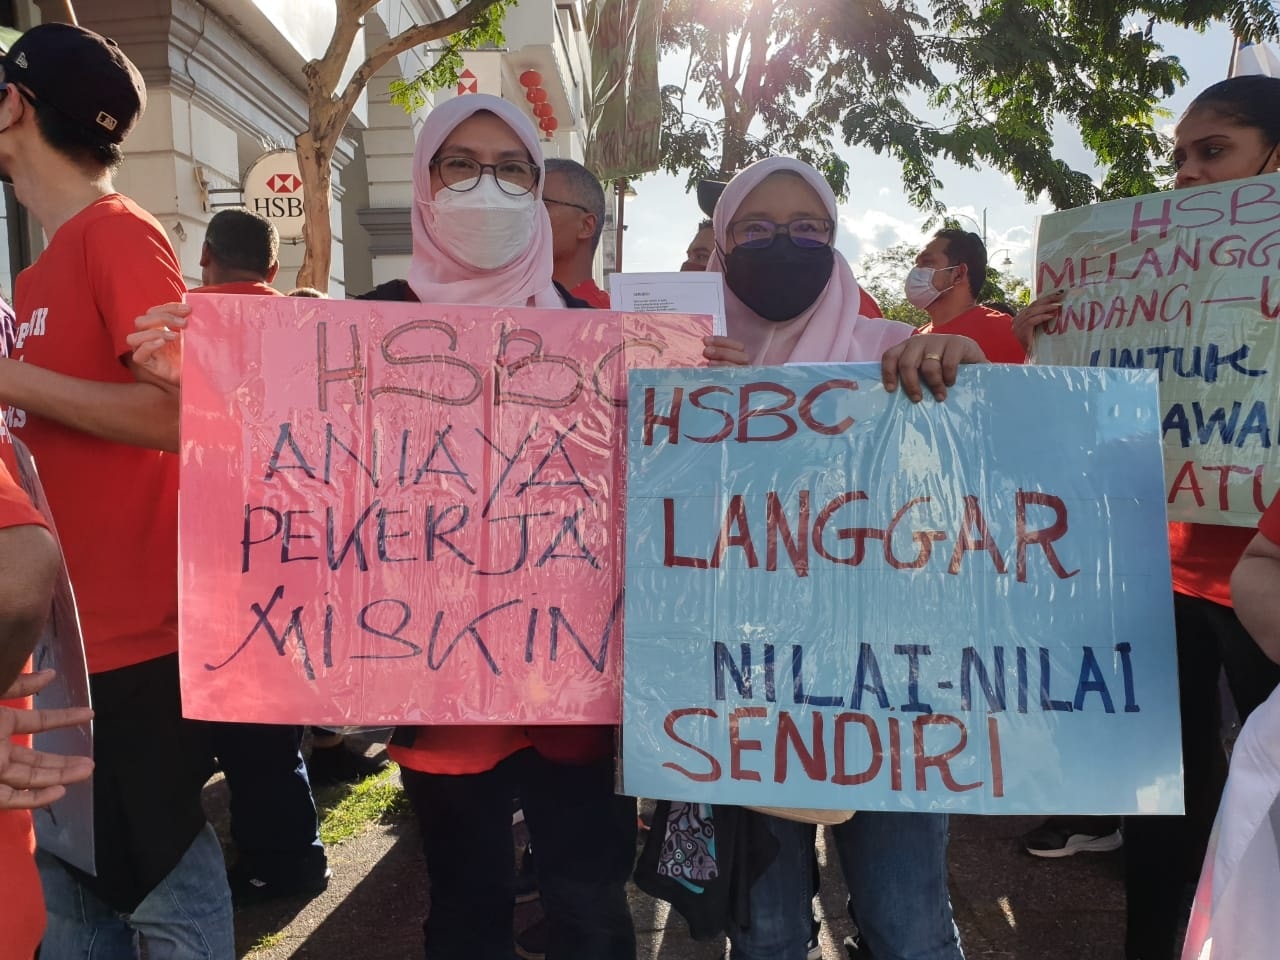 HSBC
HSBC
ANIAYA
PEKERJA
MISKIN
HSBC
LANGGAR
NILAI-NILAI
SENDIRI
HSB
MELANGG
UNDANG-U
UNTUK
AWA
ATU